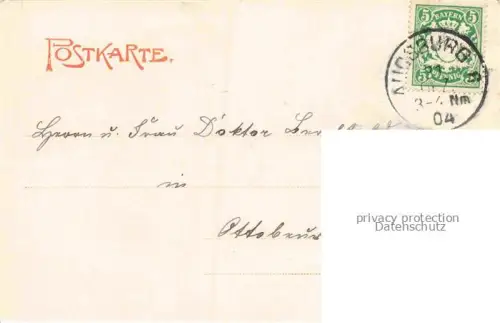 POSTKARTE.
5 BAYERN 5
PFENNIG
AUGSBURG
3-4 Nm
04
Herrn u. Frau Doktor
in
Ottobeur
privacy protection
Datenschutz